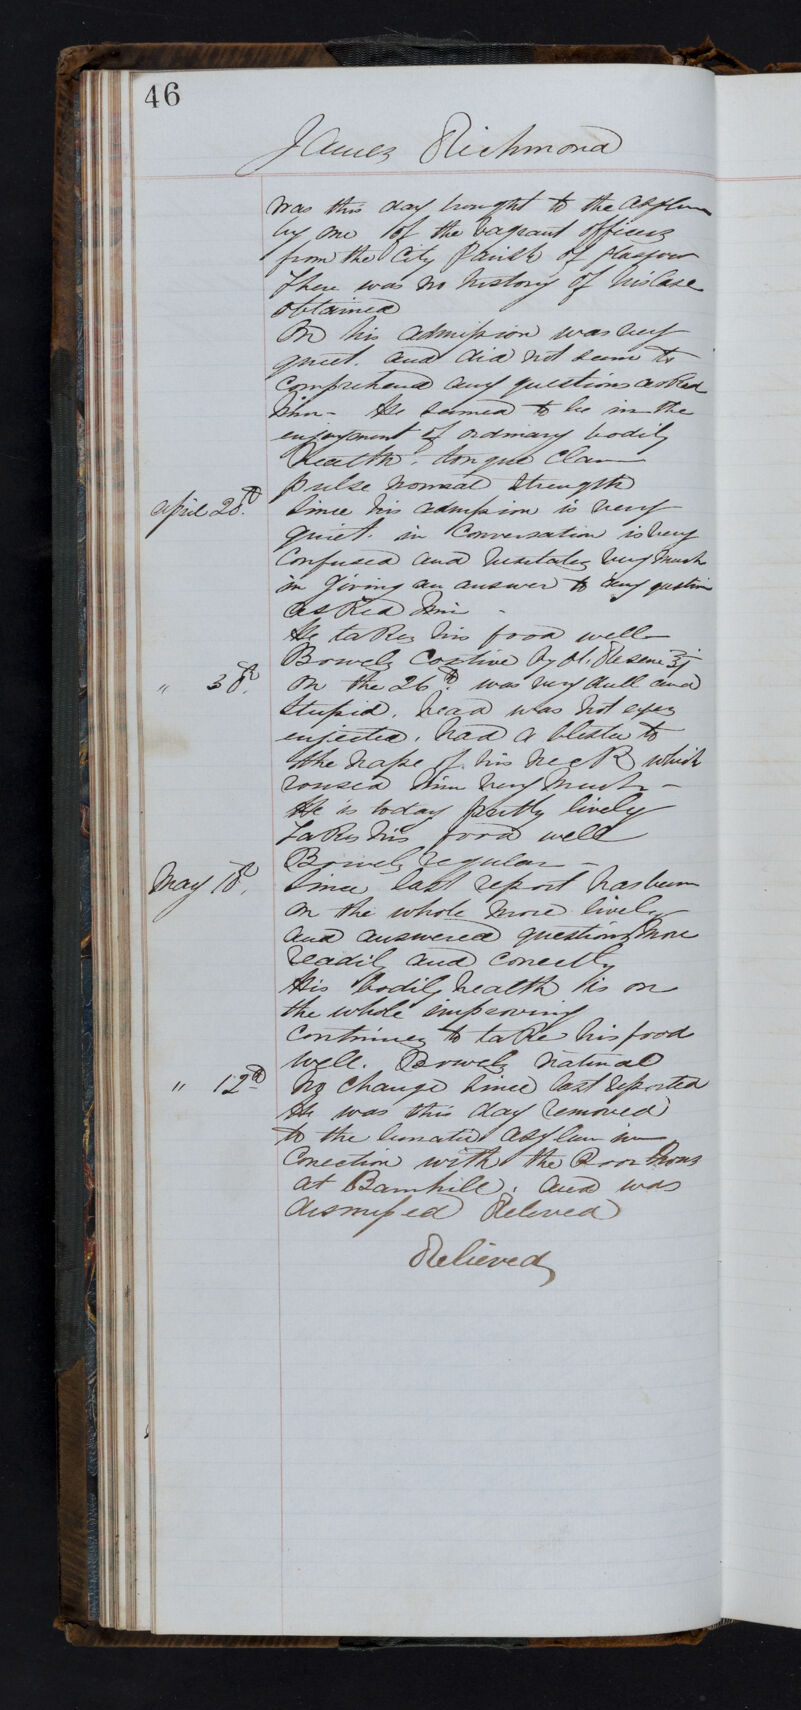 46
James Richmond
was this day brought to the asylum
by one of the vagrant officers
from the City Parish of Glasgow
There was no history of his Case
obtained
On his admission was very
quiet. and did not seem to
comprehend any questions asked
him - He seemed to be in the
enjoyment of ordinary bodily
health. tongue Clean
pulse normal strength
April 20th. Since his admission is very
quiet. in Conversation is very
Confused and hesitates very much
in giving an answer to any question
asked him -
He takes his food well
Bowels Costive
" 30th. On the 26th. was very dull and
Stupid. head was hot eyes
enjected. had a blister to
the nape of his neck which
roused him very much -
He is today pretty lively
takes his food well
Bowels regular -
May Since last report has been
on the whole more lively
and answered questions more
readil and corectly
His bodily health is on
the whole improving
Continues to take his food
well. Bowels natural
" 12th No change since last reported
He was this day removed
to the lunatic asylum in
Conection with the Poor House
at Barnhill. and was
dismissed Releived
Relieved